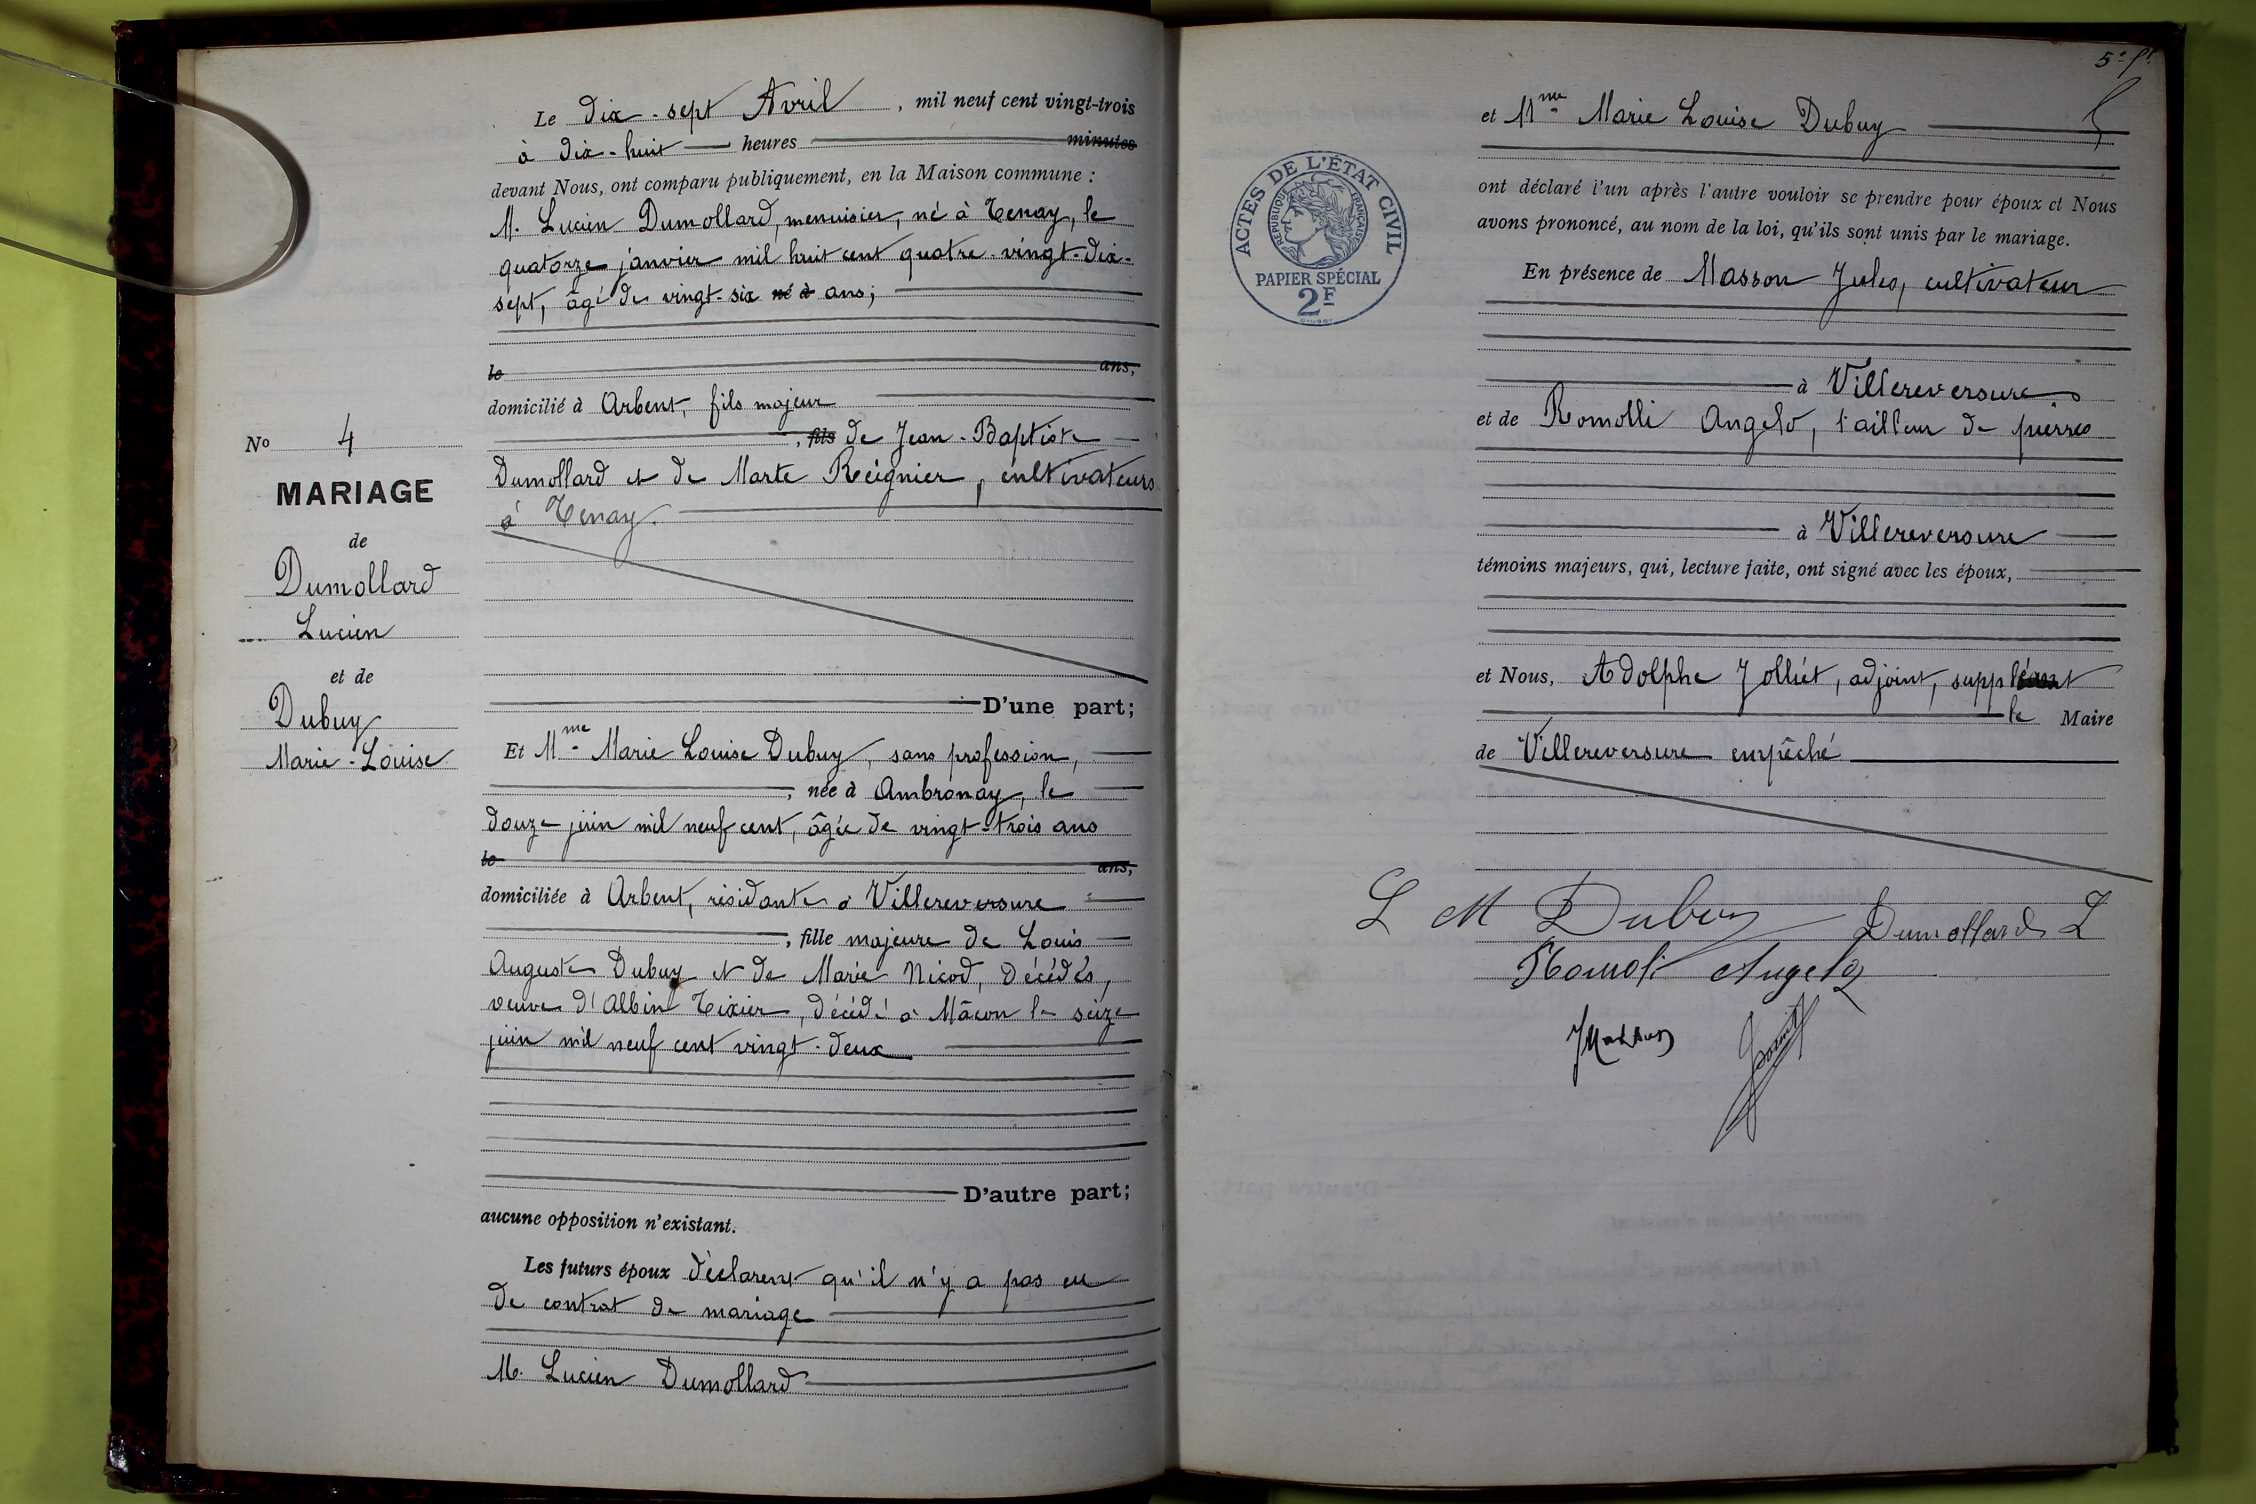 Le dix-sept Avril, mil neuf cent vingt-trois
à dix-huit heures minutes
devant Nous, ont comparu publiquement, en la Maison commune :
M. Lucien Dumollard, menuisier, né à Tenay, le
quatorze janvier mil huit cent quatre-vingt-dix-
sept, âgé de vingt-six né à ans;
le ans,
domicilié à Arbent, fils majeur
, fils de Jean-Baptiste
Dumollard et de Marte Reignier, cultivateurs
à Tenay.
No 4
MARIAGE
de
Dumollard
Lucien
et de
Dubuy
Marie-Louise
D'une part;
Et Mme Marie Louise Dubuy, sans profession,
, née à Ambronay, le
douze juin mil neuf cent, âgée de vingt-trois ans
le ans,
domiciliée à Arbent, résidante à Villereversure
, fille majeure de Louis
Auguste Dubuy et de Marie Nicod, décédés,
veuve d'Albin Tixier, décédé à Mâcon le seize
juin mil neuf cent vingt-deux
D'autre part;
aucune opposition n'existant.
Les futurs époux déclarent qu'il n'y a pas eu
de contrat de mariage
M. Lucien Dumollard
5e ft
et Mme Marie Louise Dubuy
ACTES DE L'ÉTAT CIVIL
RÉPUBLIQUE FRANÇAISE
PAPIER SPÉCIAL
2F
ont déclaré l'un après l'autre vouloir se prendre pour époux et Nous
avons prononcé, au nom de la loi, qu'ils sont unis par le mariage.
En présence de Masson Jules, cultivateur
à Villereversure
et de Romolli Angelo, tailleur de pierres
à Villereversure
témoins majeurs, qui, lecture faite, ont signé avec les époux,
et Nous, Adolphe Jolliet, adjoint, suppléant
le Maire
de Villereversure empêché
L M Dubuy Dumollard L
Romoli Angelo
JMasson